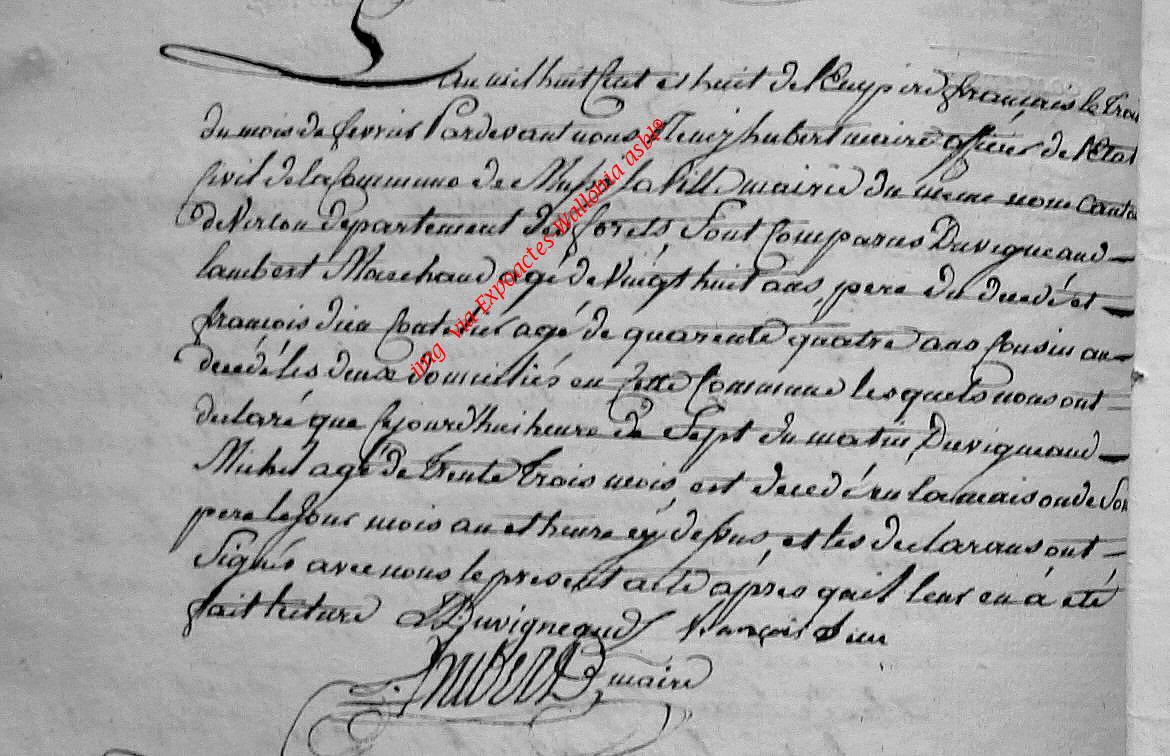 L'an mil huit Cent et huit de l'Empire français le trois
du mois de fevrier Pardevant nous hubert maire officier de l'Etat
Civil de la Commune de Mussi la Ville mairie du meme nom canton
de Virton departement des forets Sont Comparus Duvigneaud
lambert Marchand agé de Vingt huit ans, pere du decedé et
françois dieu agé de quarente quatre ans Cousin au
decedé les deux domiciliés en Cette Commune lesquels nous ont
declaré que Cejourdhui heure de Sept du matin, Duvigneaud
Michel agé de trente trois mois, est decedé en la maison de Son
pere le jour mois an et heure cy dessus, et les declarans ont
Signés avec nous le present acte après quil leur en á été
fait lecture LDuvigneaud françois dieu
hubert maire
img via Expoactes-Wallonia asbl®